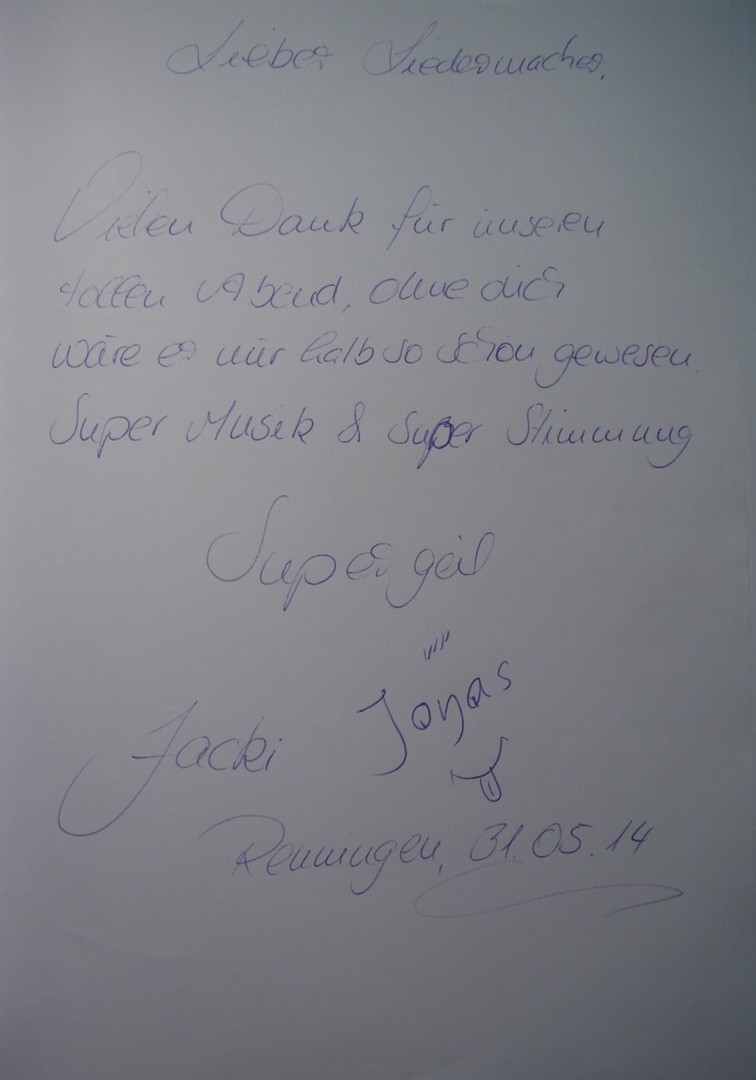 Lieber Liedermacher,
Vielen Dank für unseren
tollen Abend, ohne dich
wäre es nur halb so schön gewesen.
Super Musik & Super Stimmung
Supergeil
Jacki Jonas
Renningen, 31.05.14